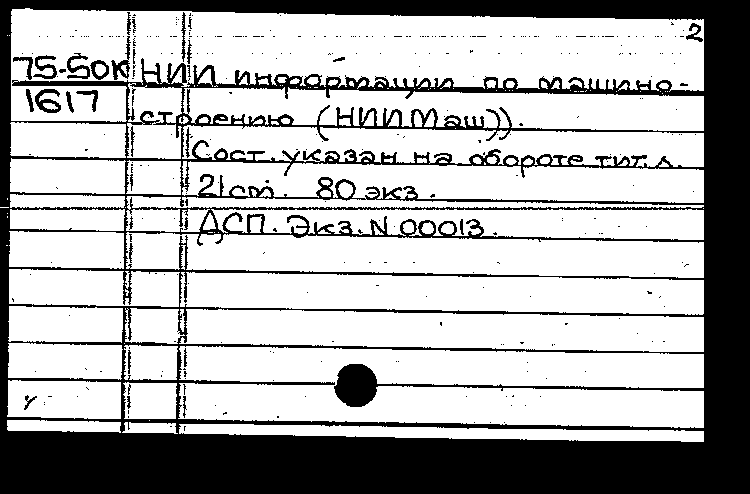 2
75-50к НИИ информации по машино-
1617 строению (НИИМаш)).
Сост. указан на обороте тит. л.
21 см. 80 экз.
ДСП. Экз. N 00013.